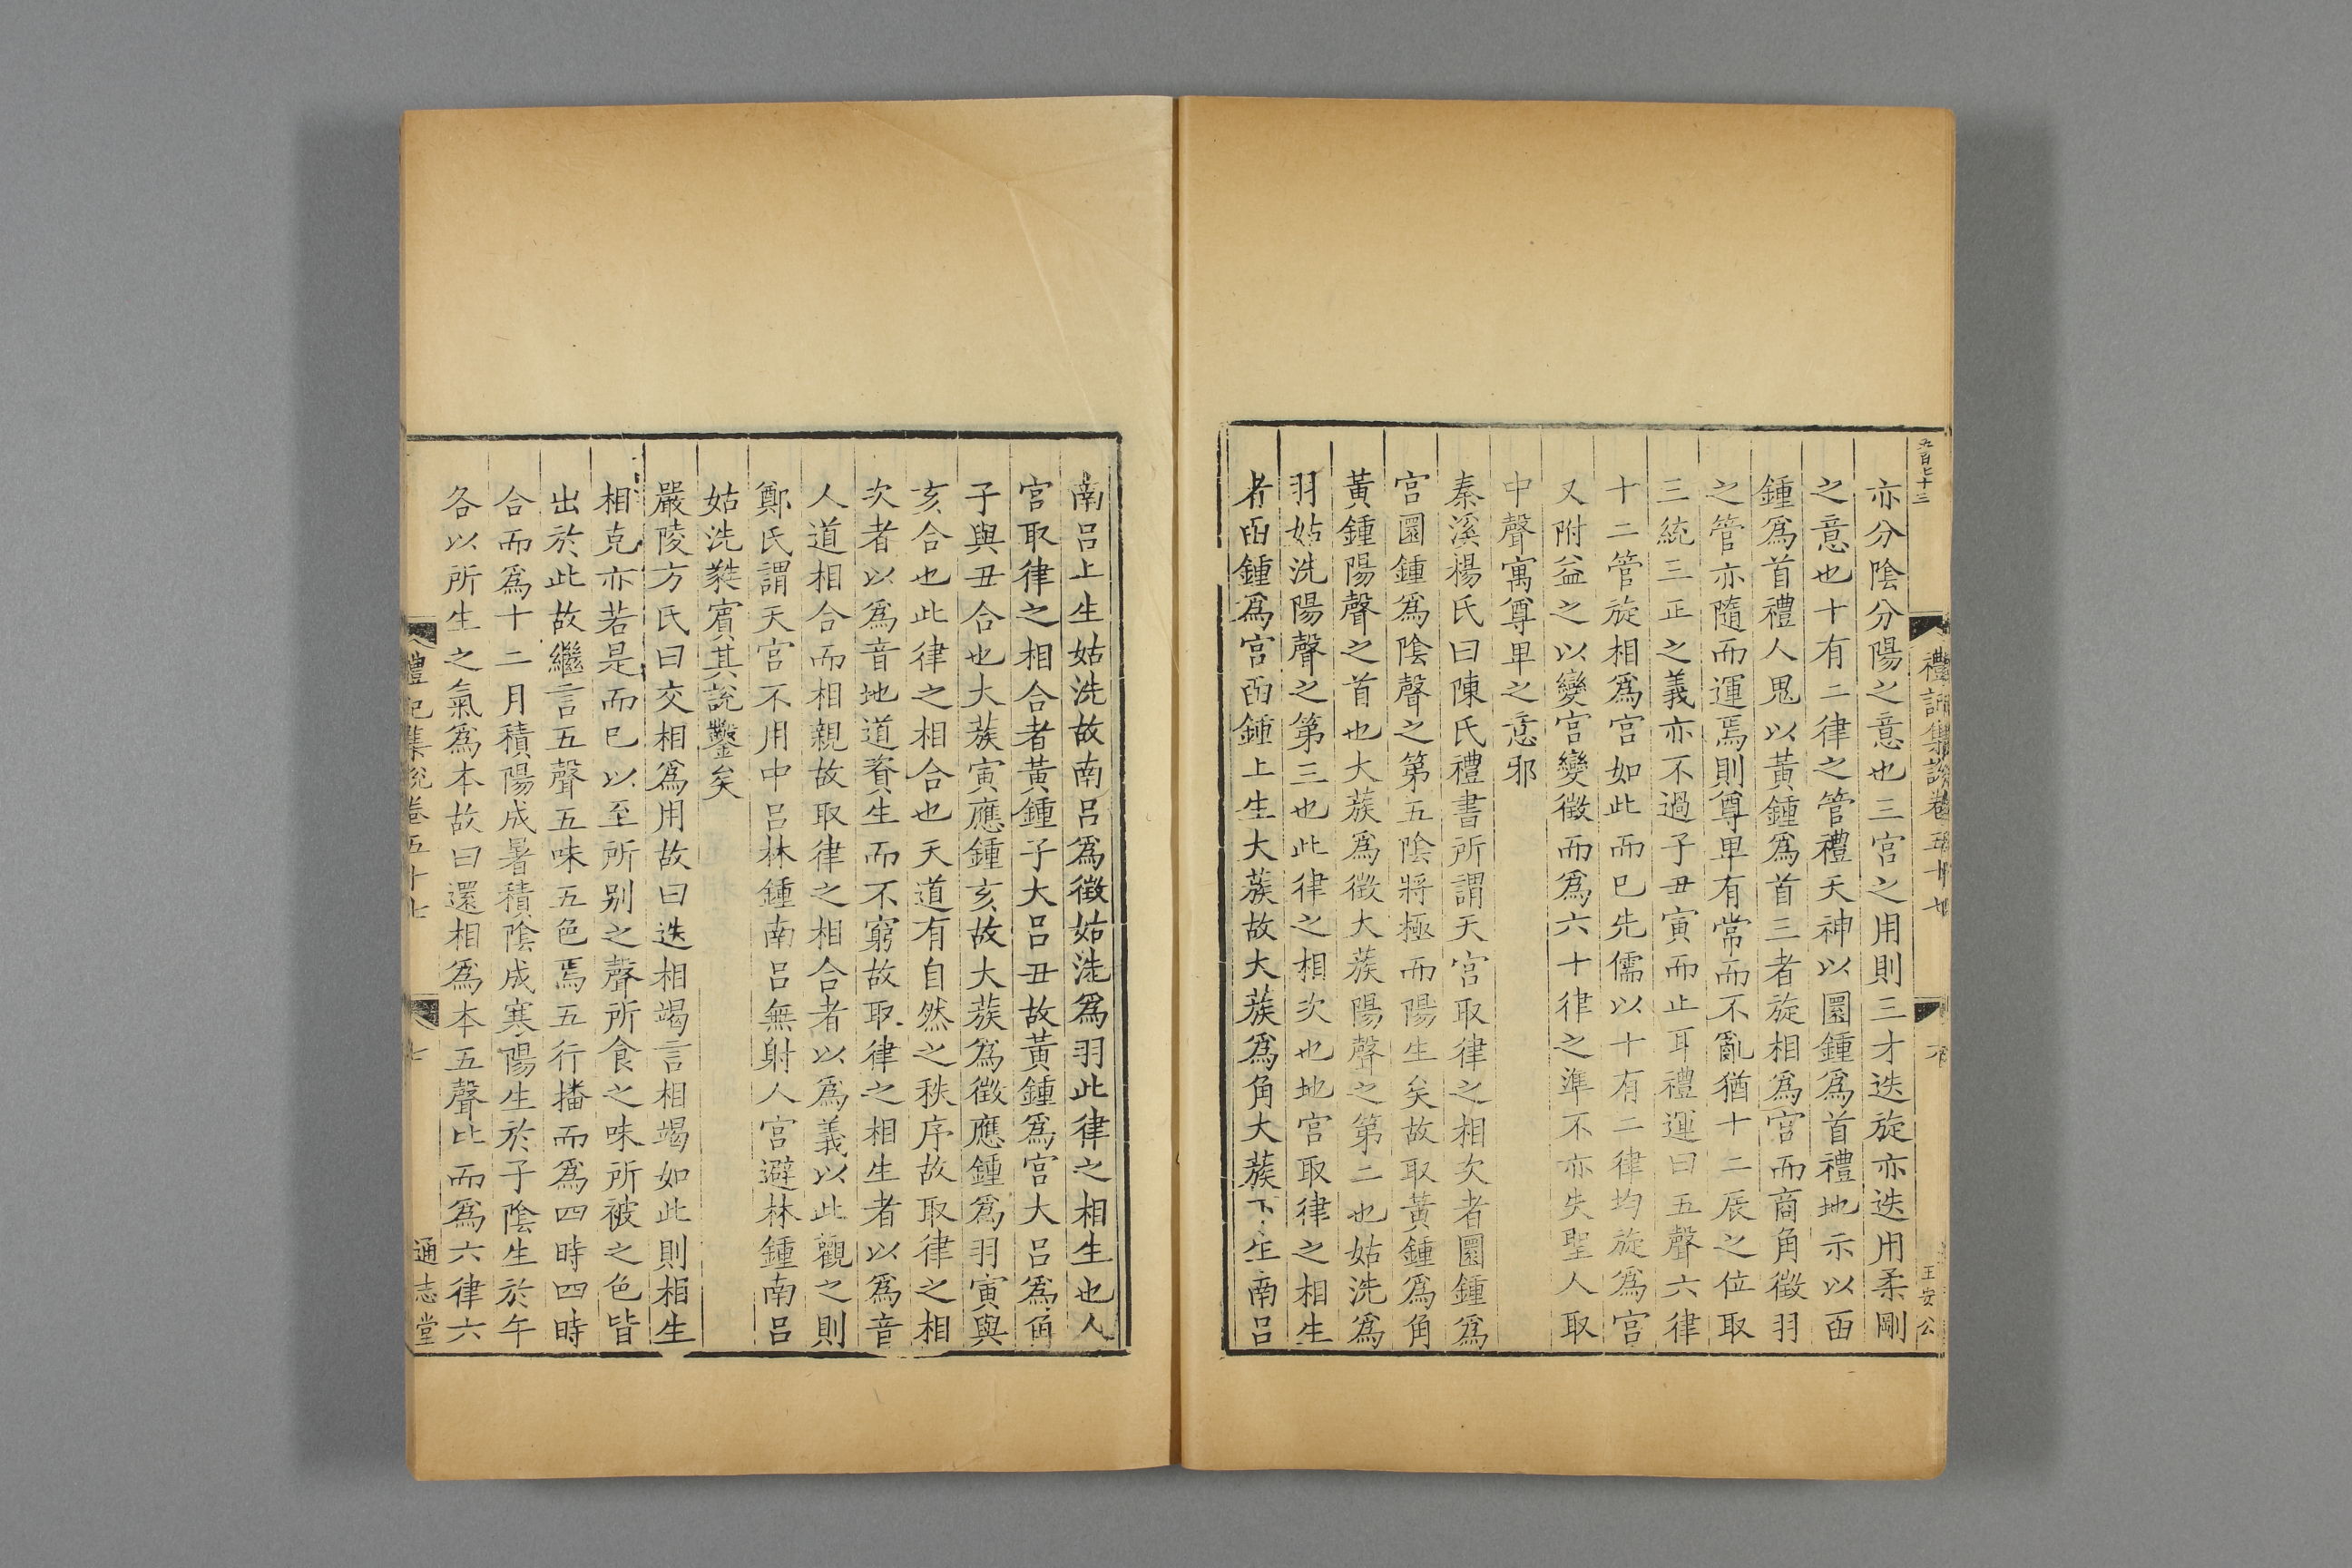 五百七十三
禮記集說卷五十七
六
王安公
亦分陰分陽之意也三宮之用則三才迭旋亦迭用柔剛
之意也十有二律之管禮天神以圜鍾爲首禮地示以𠄞
鍾爲首禮人鬼以黃鍾爲首三者旋相爲宮而商角徵羽
之管亦隨而運焉則尊卑有常而不亂猶十二辰之位取
三統三正之義亦不過子丑寅而止耳禮運曰五聲六律
十二管旋相爲宮如此而巳先儒以十有二律均旋爲宮
又附益之以變宮變徵而爲六十律之準不亦失聖人取
中聲寓尊卑之意邪
秦溪楊氏曰陳氏禮書所謂天宮取律之相次者圜鍾爲
宮圜鍾爲陰聲之第五陰將極而陽生矣故取黃鍾爲角
黃鍾陽聲之首也大蔟爲徵大蔟陽聲之第二也姑洗爲
羽姑洗陽聲之第三也此律之相次也地宮取律之相生
者函鍾爲宮函鍾上生大蔟故大蔟爲角大蔟下生南呂
南呂上生姑洗故南呂爲徵姑洗爲羽此律之相生也人
宮取律之相合者黃鍾子大呂丑故黃鍾爲宮大呂爲角
子與丑合也大蔟寅應鍾亥故大蔟爲徵應鍾爲羽寅與
亥合也此律之相合也天道有自然之秩序故取律之相
次者以爲音地道資生而不窮故取律之相生者以爲音
人道相合而相親故取律之相合者以爲義以此觀之則
鄭氏謂天宮不用中呂林鍾南呂無射人宮避林鍾南呂
姑洗蕤賓其說鑿矣
嚴陵方氏曰交相爲用故曰迭相竭言相竭如此則相生
相克亦若是而巳以至所别之聲所食之味所被之色皆
出於此故繼言五聲五味五色焉五行播而爲四時四時
合而爲十二月積陽成暑積陰成寒陽生於子陰生於午
各以所生之氣爲本故曰還相爲本五聲比而爲六律六
禮記集說卷五十七
七
通志堂